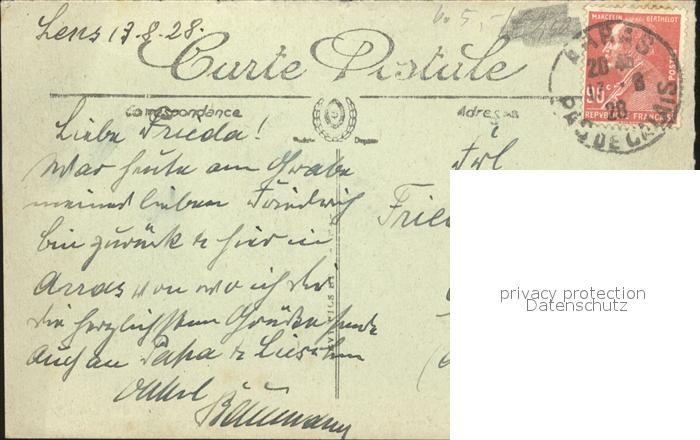 Lens 13.8.28.
Carte Postale
Correspondance
Adresse
MARCELIN BERTHELOT
POSTES
90c
REPVBLIQVE FRANÇAISE
ARRAS
PAS DE CALAIS
Liebe Frieda!
War heute am Grabe
meines lieben Friedrich
bin zurück & hier in
Arras von wo ich dir
die herzlichsten Grüße sende
Auch an Papa & Lieschen
Onkel
Baumann
Frl
Frie
privacy protection
Datenschutz